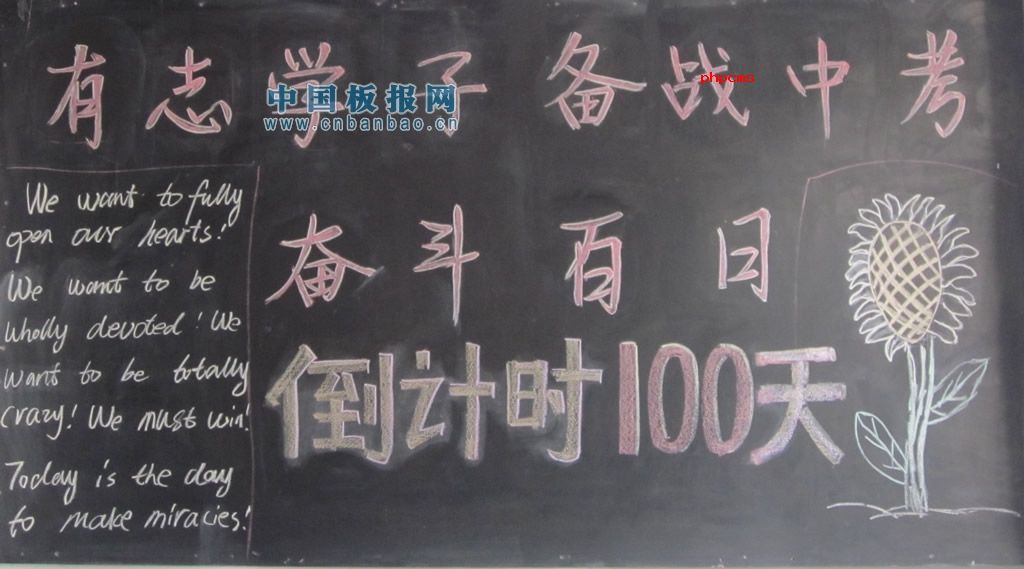 有志学子 备战中考
phpcms
中国板报网
www.cnbanbao.cn
We want to fully
open our hearts!
We want to be
wholly devoted! We
want to be totally
crazy! We must win!
Today is the day
to make miracies!
奋斗百日
倒计时100天